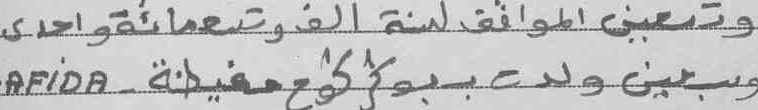 وتسعين الموافق لسنة الف وتسعمائة واحدى
وسبعين ولدت ببو حفيظة - AFIDA